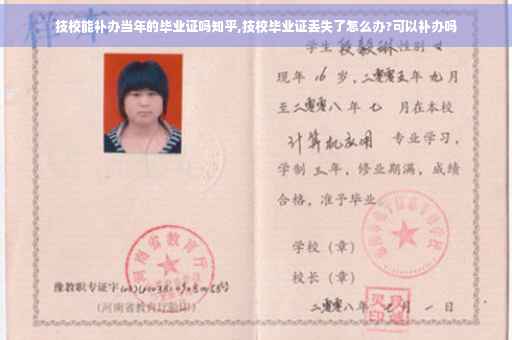 技校能补办当年的毕业证吗知乎,技校毕业证丢失了怎么办?可以补办吗
样本
学生 段毅琳 性别 女
现年 16 岁,二零零五年 九月
至二零零八年 七 月在本校
计算机应用 专业学习,
学制 三 年,修业期满,成绩
合格,准予毕业
学校(章)
校长(章)
河南省教育厅
豫教职专证字
(河南省教育厅验印)
二零零八年 月 一 日